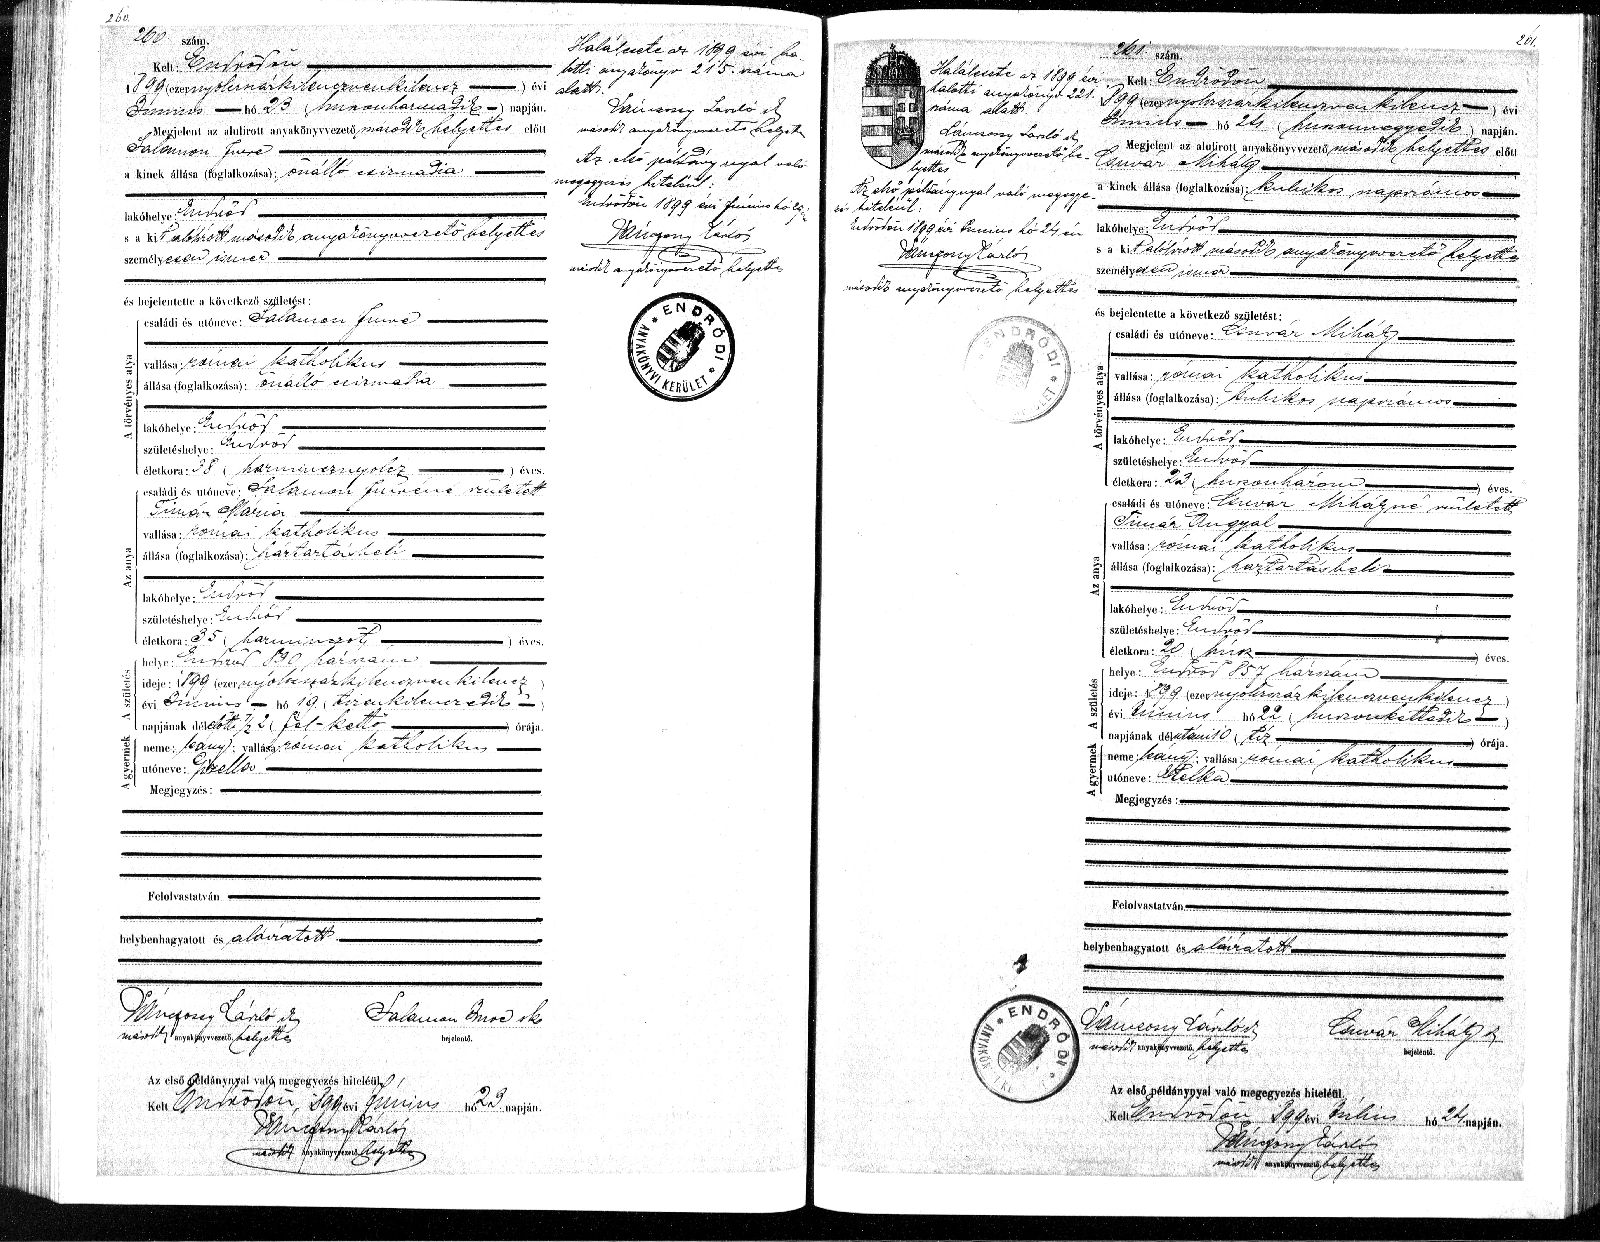 260.
260 szám.
Kelt: Endrődön
1899 (ezernyolczszázkilenczvenkilencz) évi
Június hó 23 (huszonharmadik) napján.
Megjelent az alulirott anyakönyvvezető második helyettes előtt
Salamon Imre
a kinek állása (foglalkozása): önálló csizmadia
lakóhelye: Endrőd
s a kit alólirott második anyakönyvvezető helyettes
személyesen ismer
és bejelentette a következő születést:
A törvényes atya
családi és utóneve: Salamon Imre
vallása: római katholikus
állása (foglalkozása): önálló csizmadia
lakóhelye: Endrőd
születéshelye: Endrőd
életkora: 38 (harmincznyolcz) éves.
Az anya
családi és utóneve: Salamon Imréné született
Timár Mária
vallása: római katholikus
állása (foglalkozása): háztartásbeli
lakóhelye: Endrőd
születéshelye: Endrőd
életkora: 35 (harminczöt) éves.
A születés
helye: Endrőd 890 házszám
ideje: 1899 (ezernyolczszázkilenczvenkilencz)
évi Június hó 19 (tizenkilenczedik)
napjának délelőtti ½ 2 (fél-kettő) órája.
A gyermek
neme: leány; vallása: római katholikus
utóneve: Gizella
Megjegyzés:
Felolvastatván
helybenhagyatott és aláiratott
Vánczony László sk
második anyakönyvvezető helyettes
Salamon Imre sk
bejelentő.
Az első példánynyal való megegyezés hiteléül.
Kelt Endrődön, 899 évi Június hó 23 napján.
Vánczony László
második anyakönyvvezető helyettes
Halálesete az 1899 évi ha-
lotti anyakönyv 215. száma
alatt.
Vánczony László sk
második anyakönyvvezető helyettes
Az első példánynyal való
megegyezés hiteléül:
Endrődön 1899 évi Június hó
Vánczony László
második anyakönyvvezető helyettes
ENDRŐDI
ANYAKÖNYVI KERÜLET
261.
261 szám.
Kelt: Endrődön
1899 (ezernyolczszázkilenczvenkilencz) évi
Június hó 24 (huszonnegyedik) napján.
Megjelent az alulirott anyakönyvvezető második helyettes előtt
Csuvár Mihály
a kinek állása (foglalkozása): kubikos napszámos
lakóhelye: Endrőd
s a kit alólirott második anyakönyvvezető helyettes
személyesen ismer
és bejelentette a következő születést:
A törvényes atya
családi és utóneve: Csuvár Mihály
vallása: római katholikus
állása (foglalkozása): kubikos napszámos
lakóhelye: Endrőd
születéshelye: Endrőd
életkora: 23 (huszonhárom) éves.
Az anya
családi és utóneve: Csuvár Mihályné született
Timár Angyal
vallása: római katholikus
állása (foglalkozása): háztartásbeli
lakóhelye: Endrőd
születéshelye: Endrőd
életkora: 20 (húsz) éves.
A születés
helye: Endrőd 857 házszám
ideje: 1899 (ezernyolczszázkilenczvenkilencz)
évi Június hó 22 (huszonkettedik)
napjának délutáni 10 (tíz) órája.
A gyermek
neme: leány; vallása: római katholikus
utóneve: Etelka
Megjegyzés:
Felolvastatván
helybenhagyatott és aláiratott
Vánczony László sk
második anyakönyvvezető helyettes
Csuvár Mihály sk
bejelentő.
Az első példánynyal való megegyezés hiteléül.
Kelt Endrődön 899 évi Június hó 24 napján.
Vánczony László
második anyakönyvvezető helyettes
Halálesete az 1899 évi
halotti anyakönyv 221.
száma alatt.
Vánczony László sk
második anyakönyvvezető he-
lyettes
Az első példánynyal való megegye-
zés hiteléül:
Endrődön 1899 évi Június hó 24 én
Vánczony László
második anyakönyvvezető helyettes
ENDRŐDI
ENDRŐDI
ANYAKÖNYVI